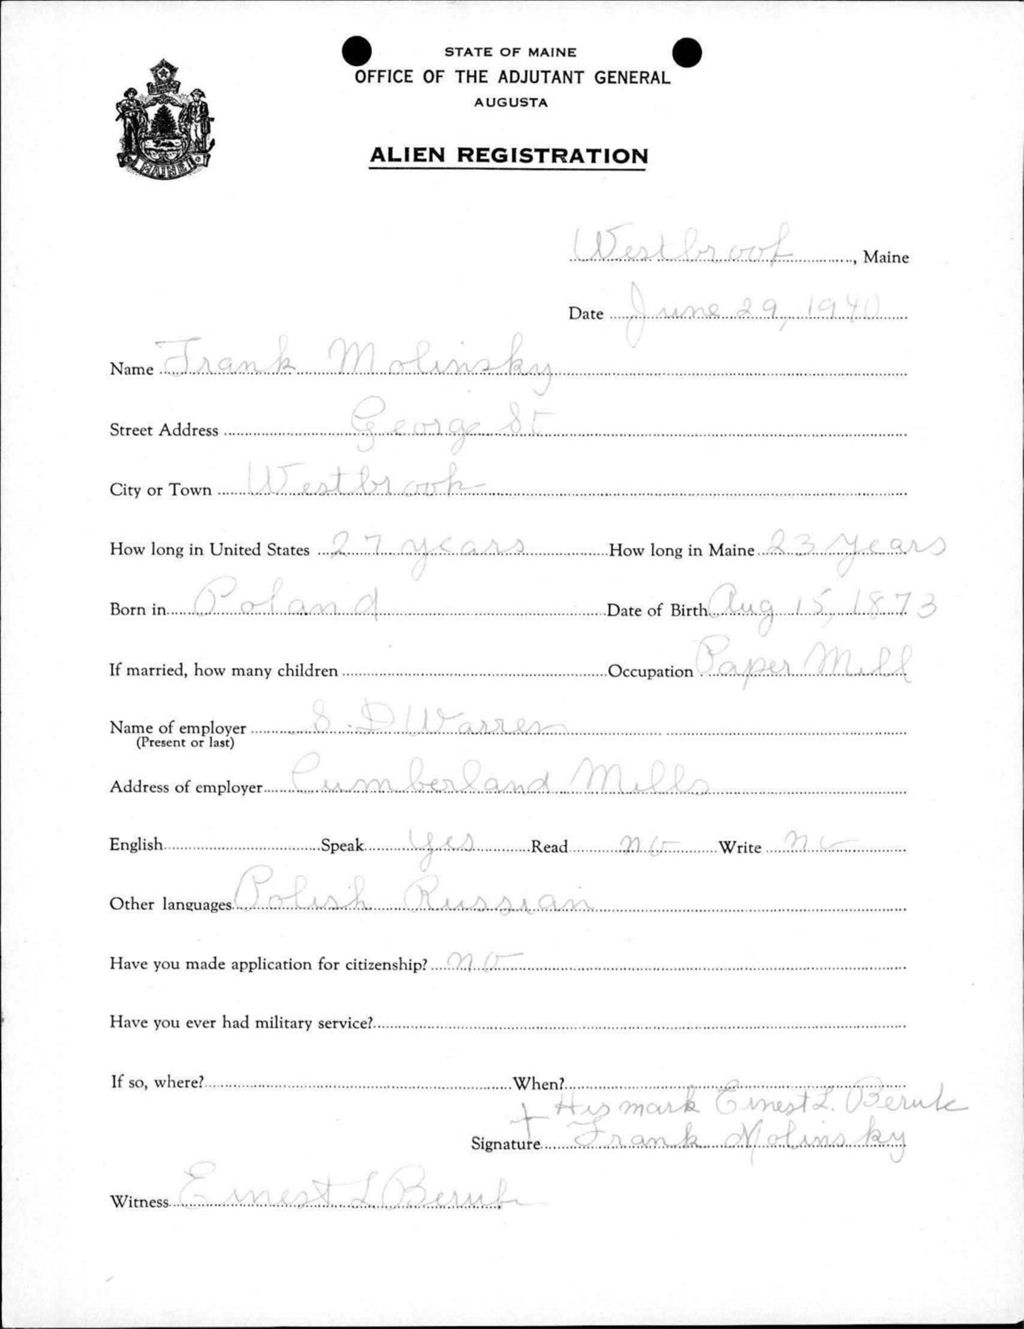 STATE OF MAINE
OFFICE OF THE ADJUTANT GENERAL
AUGUSTA
ALIEN REGISTRATION
MAINE
Westbrook, Maine
Date June 29, 1940
Name Frank Molinsky
Street Address George St
City or Town Westbrook
How long in United States 27 years How long in Maine 23 years
Born in Poland Date of Birth Aug 15, 1873
If married, how many children Occupation Paper Mill
Name of employer S. D Warren
(Present or last)
Address of employer Cumberland Mills
English Speak Yes Read no Write no
Other languages Polish Russian
Have you made application for citizenship? no
Have you ever had military service?
If so, where? When?
+ His mark Ernest L. Berube
Signature Frank Molinsky
Witness Ernest L Berube